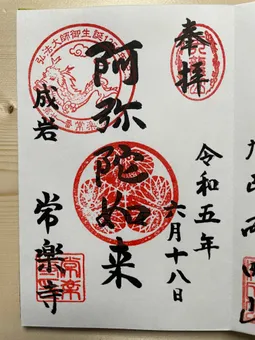 奉拝
令和五年
六月十八日
阿弥陀如来
弘法大師御生誕
成岩
常楽寺